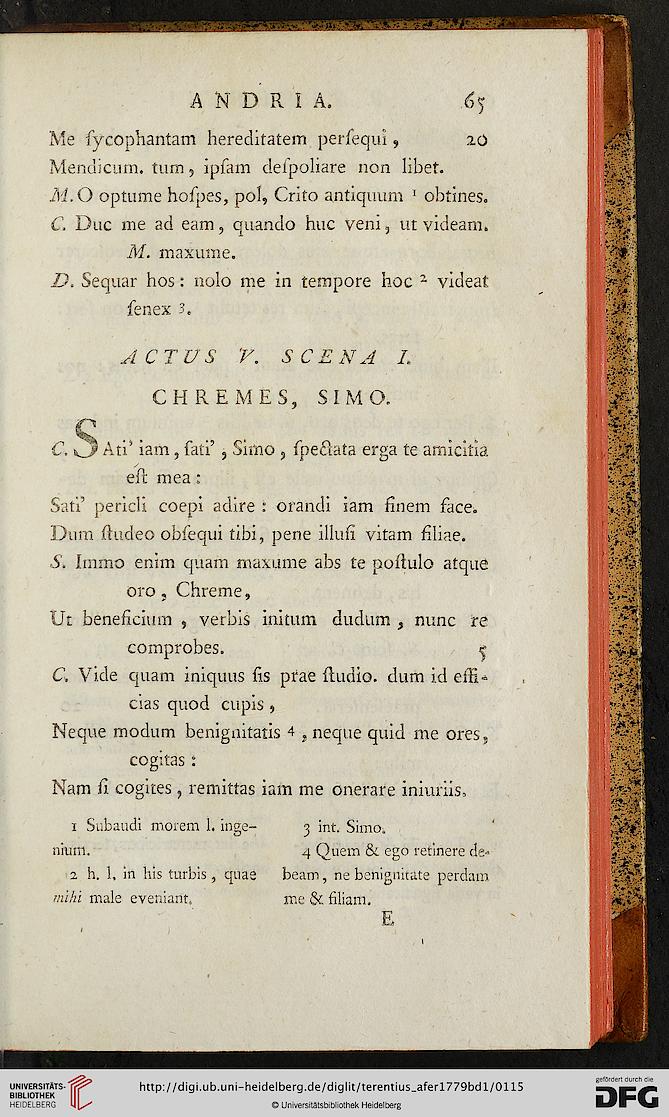 ANDRIA. 65
Me ſycophantam hereditatem perſequi, 20
Mendicum. tum, ipſam deſpoliare non libet.
M. O optume hoſpes, pol, Crito antiquum 1 obtines.
C. Duc me ad eam, quando huc veni, ut videam.
M. maxume.
D. Sequar hos: nolo me in tempore hoc 2 videat
ſenex 3.
ACTUS V. SCENA I.
CHREMES, SIMO.
C. SAti' iam, ſati', Simo, ſpectata erga te amicitia
eſt mea:
Sati' pericli coepi adire: orandi iam finem face.
Dum ſtudeo obſequi tibi, pene illuſi vitam filiae.
S. Immo enim quam maxume abs te poſtulo atque
oro, Chreme,
Ut beneficium, verbis initum dudum, nunc re
comprobes. 5
C. Vide quam iniquus ſis prae ſtudio. dum id effi-
cias quod cupis,
Neque modum benignitatis 4, neque quid me ores,
cogitas:
Nam ſi cogites, remittas iam me onerare iniuriis.
1 Subaudi morem l. inge-
nium.
2 h. l. in his turbis, quae
mihi male eveniant.
3 int. Simo.
4 Quem & ego retinere de-
beam, ne benignitate perdam
me & filiam.
E
UNIVERSITÄTS-
BIBLIOTHEK
HEIDELBERG
http://digi.ub.uni-heidelberg.de/diglit/terentius_afer1779bd1/0115
© Universitätsbibliothek Heidelberg
gefördert durch die
DFG